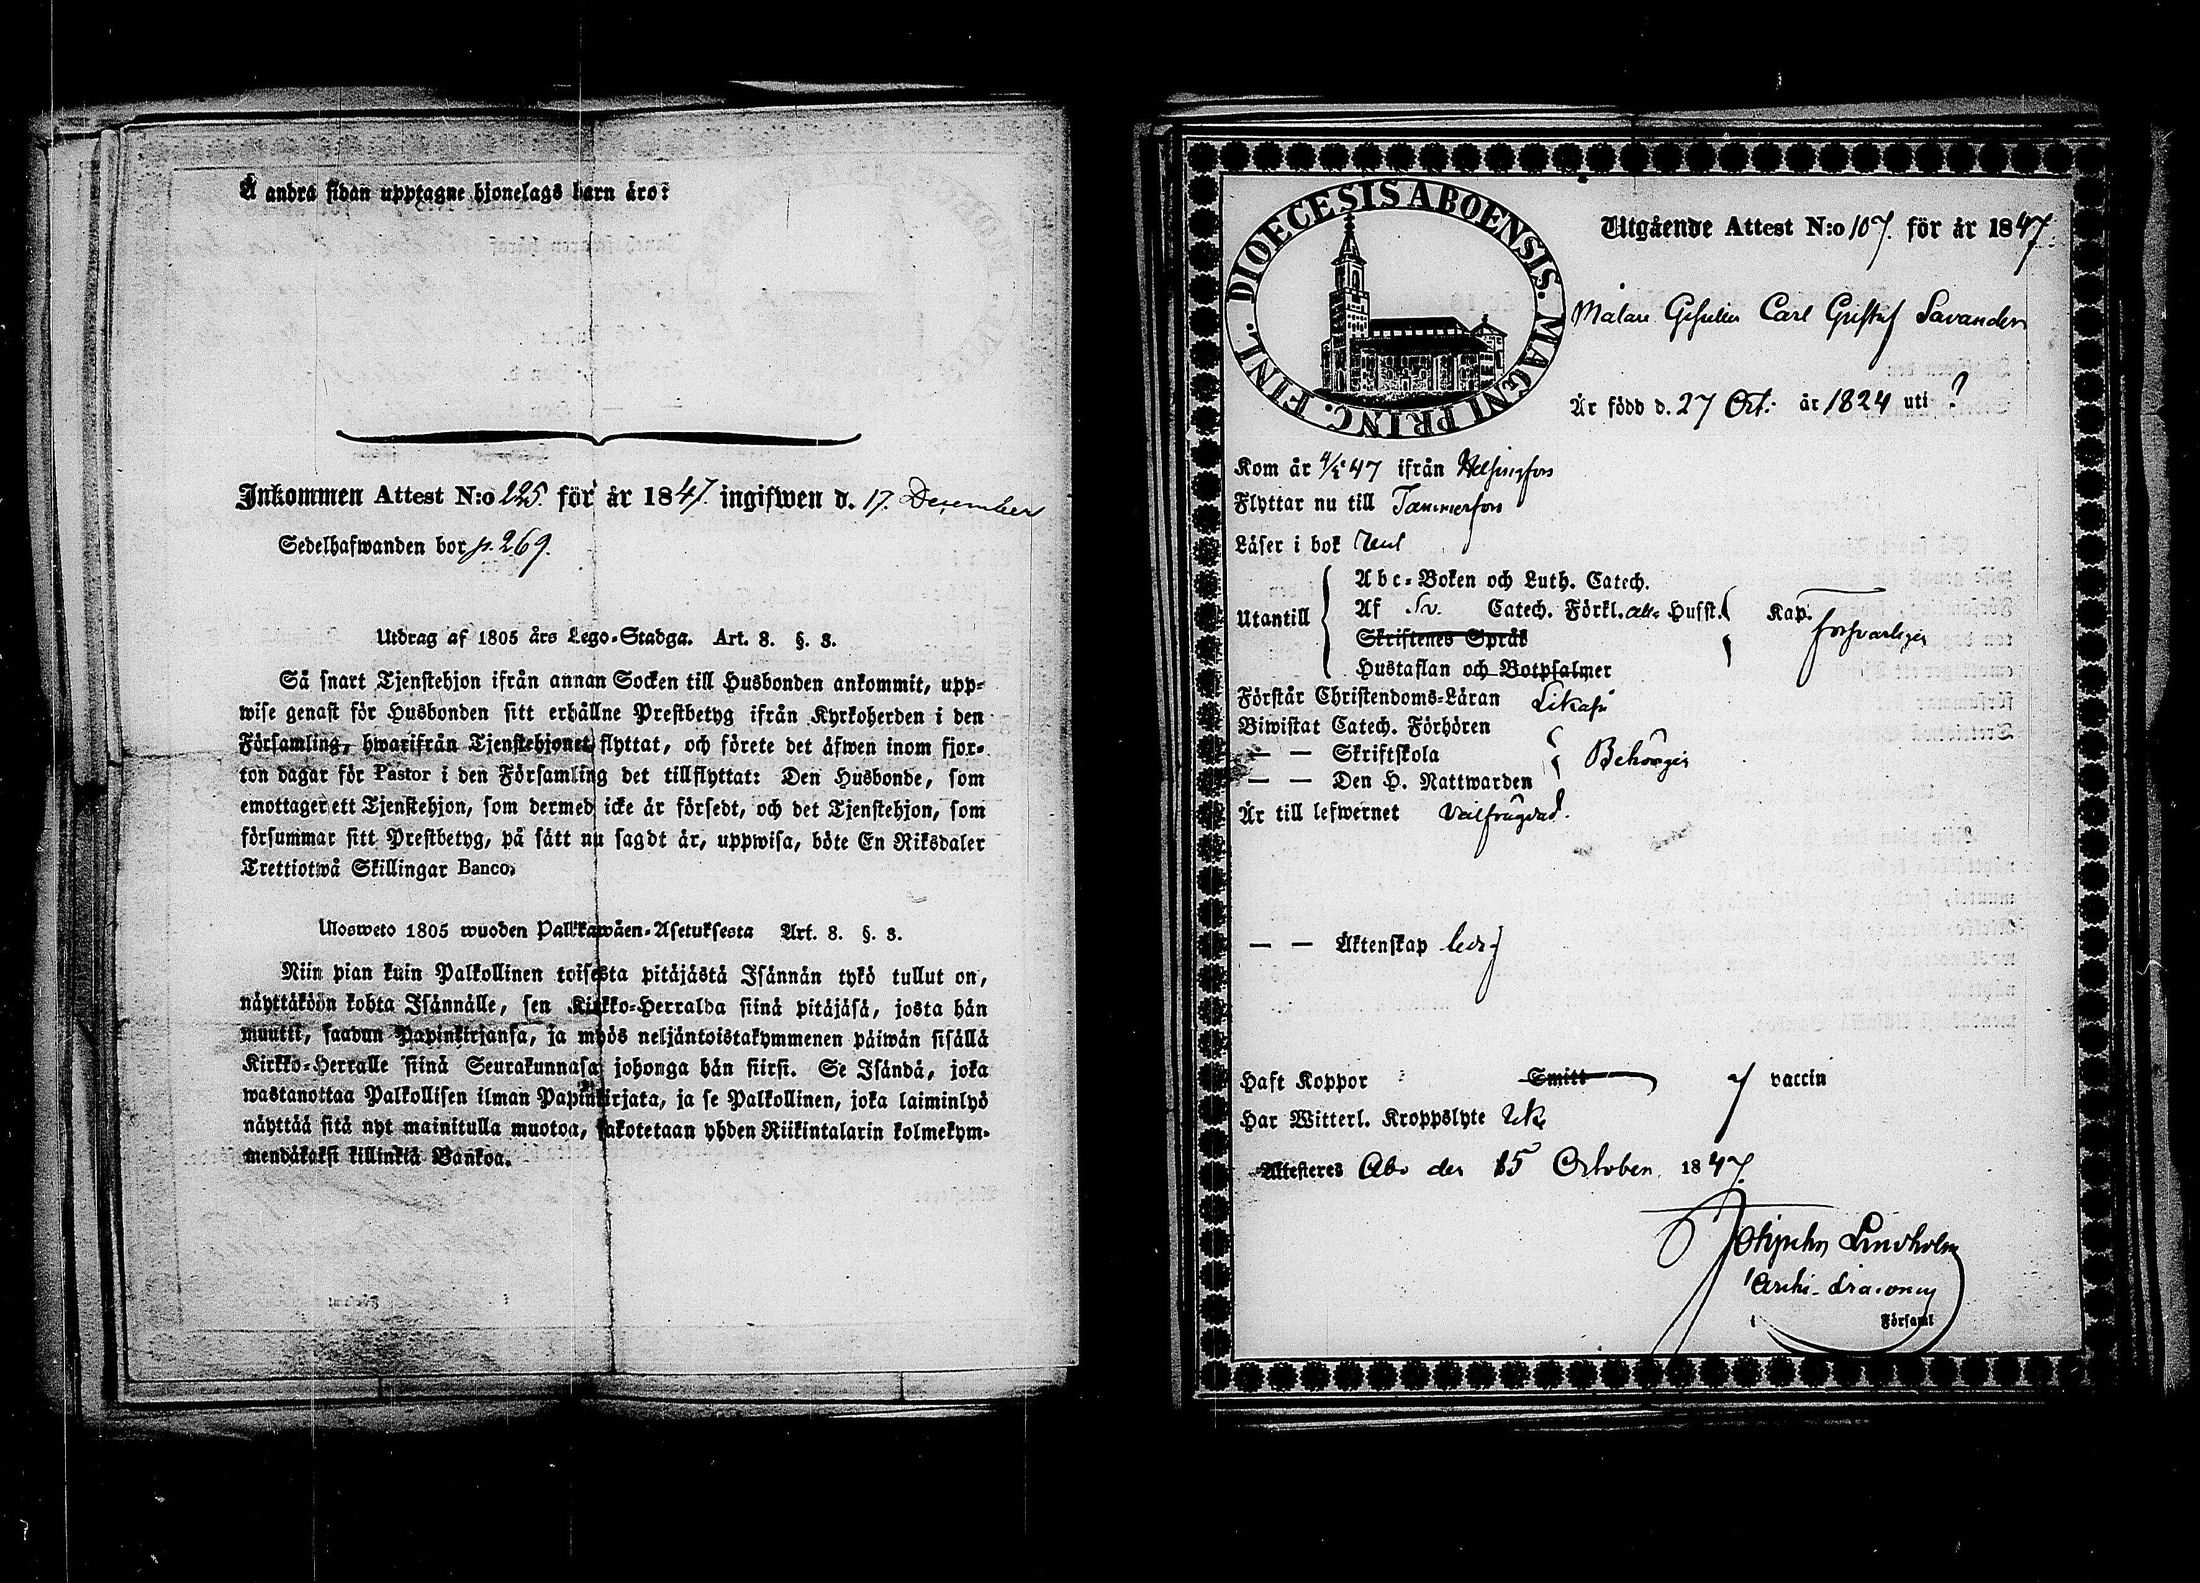 Å andra sidan upptagne hjonelags barn äro:
Inkommen Attest N:o 225. för år 1847. ingifwen d. 17. December
Sedelhafwanden bor p. 269.
Utdrag af 1805 års Lego-Stadga. Art. 8. §. 3.
Så snart Tjenstehjon ifrån annan Socken till Husbonden ankommit, upp-
wise genast för Husbonden sitt erhållne Prestbetyg ifrån Kyrkoherden i den
Församling, hwarifrån Tjenstehjonet flyttat, och förete det äfwen inom fjor-
ton dagar för Pastor i den Församling det tillflyttat: Den Husbonde, som
emottager ett Tjenstehjon, som dermed icke är försedt, och det Tjenstehjon, som
försummar sitt Prestbetyg, på sätt nu sagdt är, uppwisa, böte En Riksdaler
Trettiotwå Skillingar Banco.
Ulosweto 1805 wuoden Palkkawäen-Asetuksesta Art. 8. §. 3.
Niin pian kuin Palkollinen toisesta pitäjästä Isännän tykö tullut on,
näyttäköön kohta Isännälle, sen Kirkko-Herralda siinä pitäjäsä, josta hän
muutti, saadun Papinkirjansa, ja myös neljäntoistakymmenen päiwän sisällä
Kirkko-Herralle siinä Seurakunnasa johonga hän siirsi. Se Isändä, joka
wastanottaa Palkollisen ilman Papinkirjata, ja se Palkollinen, joka laiminlyö
näyttää sitä nyt mainitulla muotoa, sakotetaan yhden Riikintalarin kolmekym-
mendäkaksi killinkiä Bankoa.
DIOECESIS ABOENSIS. MAGNI PRINC. FINL.
Utgående Attest N:o 107. för år 1847.
Målare Gesellen Carl Gustaf Savander
Är född d. 27 Oct. år 1824 uti ?
Kom år 47 ifrån Helsingfors
Flyttar nu till Tammerfors
Läser i bok
Utantill
Abc-Boken och Luth. Catech.
Af Sv. Catech. Förkl. Hufst. Kap. försvarligen
Skriftenes Språk
Hustaflan och Botpsalmer
Förstår Christendoms-Läran Likaså
Biwistat Catech. Förhören
— — Skriftskola
— — Den H. Nattwarden
Behörigen
Är till lefwernet Välfrägdad.
— — Äktenskap ledig
Haft Koppor Smitt vaccin
Har Witterl. Kroppslyte
Attesteras Åbo den 15 October 1847.
Lindholm
i Församl